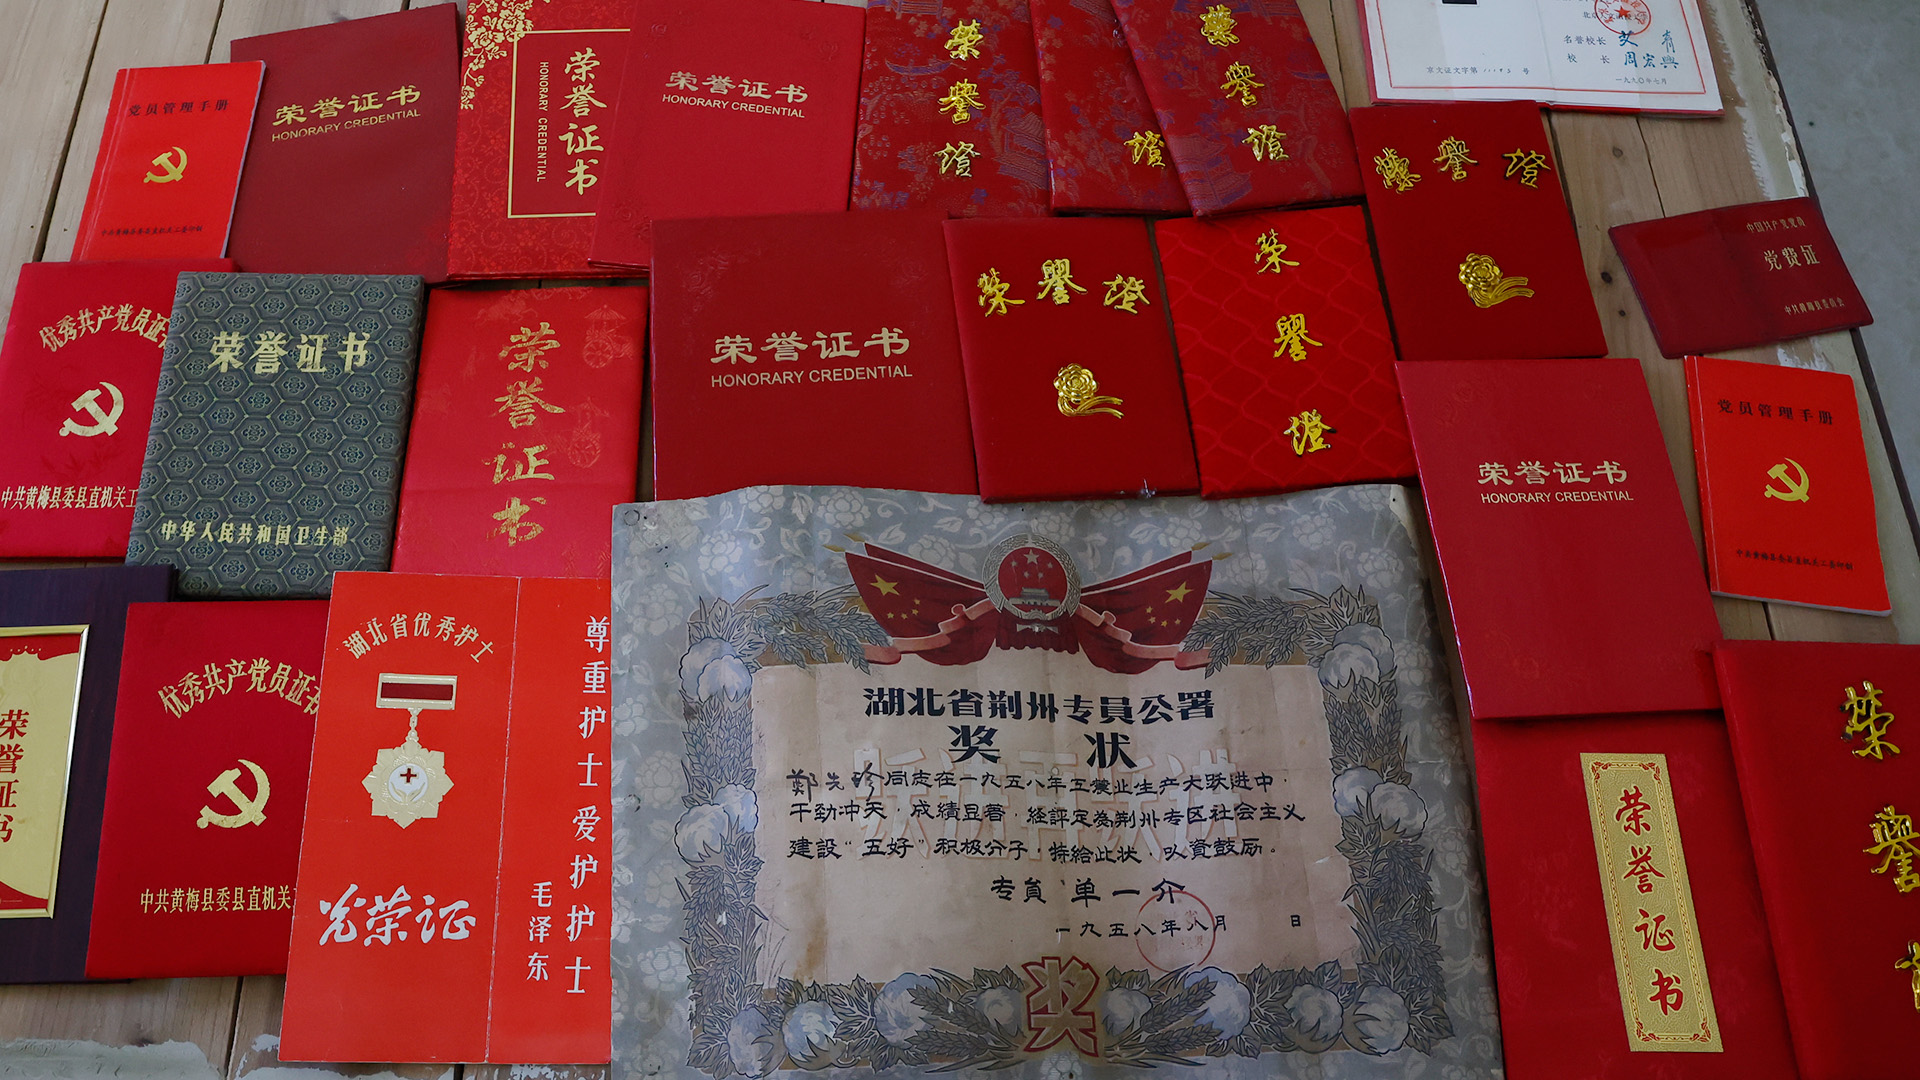 党员管理手册
中共黄梅县委县直机关工委印制
荣誉证书
HONORARY CREDENTIAL
荣誉证书
HONORARY CREDENTIAL
荣誉证书
HONORARY CREDENTIAL
荣譽證
證
榮譽證
名誉校长 艾青
校长 周宏興
京文证文字第
号
一九九〇年七月
優譽證
中国共产党党员
党费证
中共黄梅县委员会
优秀共产党员证书
中共黄梅县委县直机关工
荣誉证书
中华人民共和国卫生部
荣誉证书
荣誉证书
HONORARY CREDENTIAL
荣譽證
荣譽證
荣誉证书
HONORARY CREDENTIAL
党员管理手册
中共黄梅县委县直机关工委印制
荣誉证书
优秀共产党员证书
中共黄梅县委县直机关工
湖北省优秀护士
光荣证
尊重护士爱护护士
毛泽东
湖北省荆州专员公署
奖状
鄭先珍同志在一九五八年五農业生产大跃进中，
干劲冲天，成績显著，經評定為荆州专区社会主义
建設“五好”积极分子，特給此状，以資鼓励。
专員 单一介
一九五八年八月 日
奖
荣誉证书
荣譽